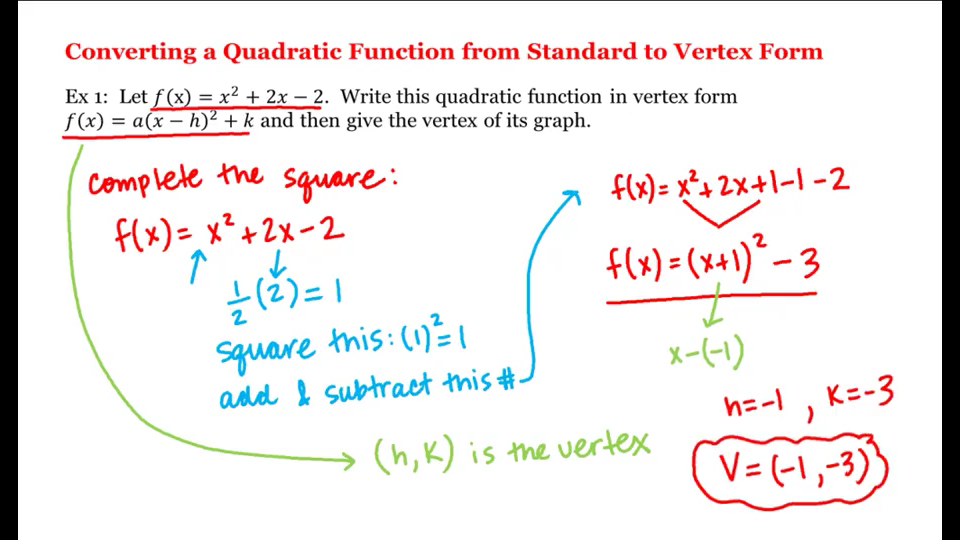 Converting a Quadratic Function from Standard to Vertex Form
Ex 1: Let f(x) = x² + 2x − 2. Write this quadratic function in vertex form
f(x) = a(x − h)² + k and then give the vertex of its graph.
complete the square:
f(x) = x² + 2x − 2
1/2 (2) = 1
square this: (1)² = 1
add & subtract this #
(h, k) is the vertex
f(x) = x² + 2x + 1 − 1 − 2
f(x) = (x+1)² − 3
x − (−1)
h = −1 , k = −3
V = (−1, −3)